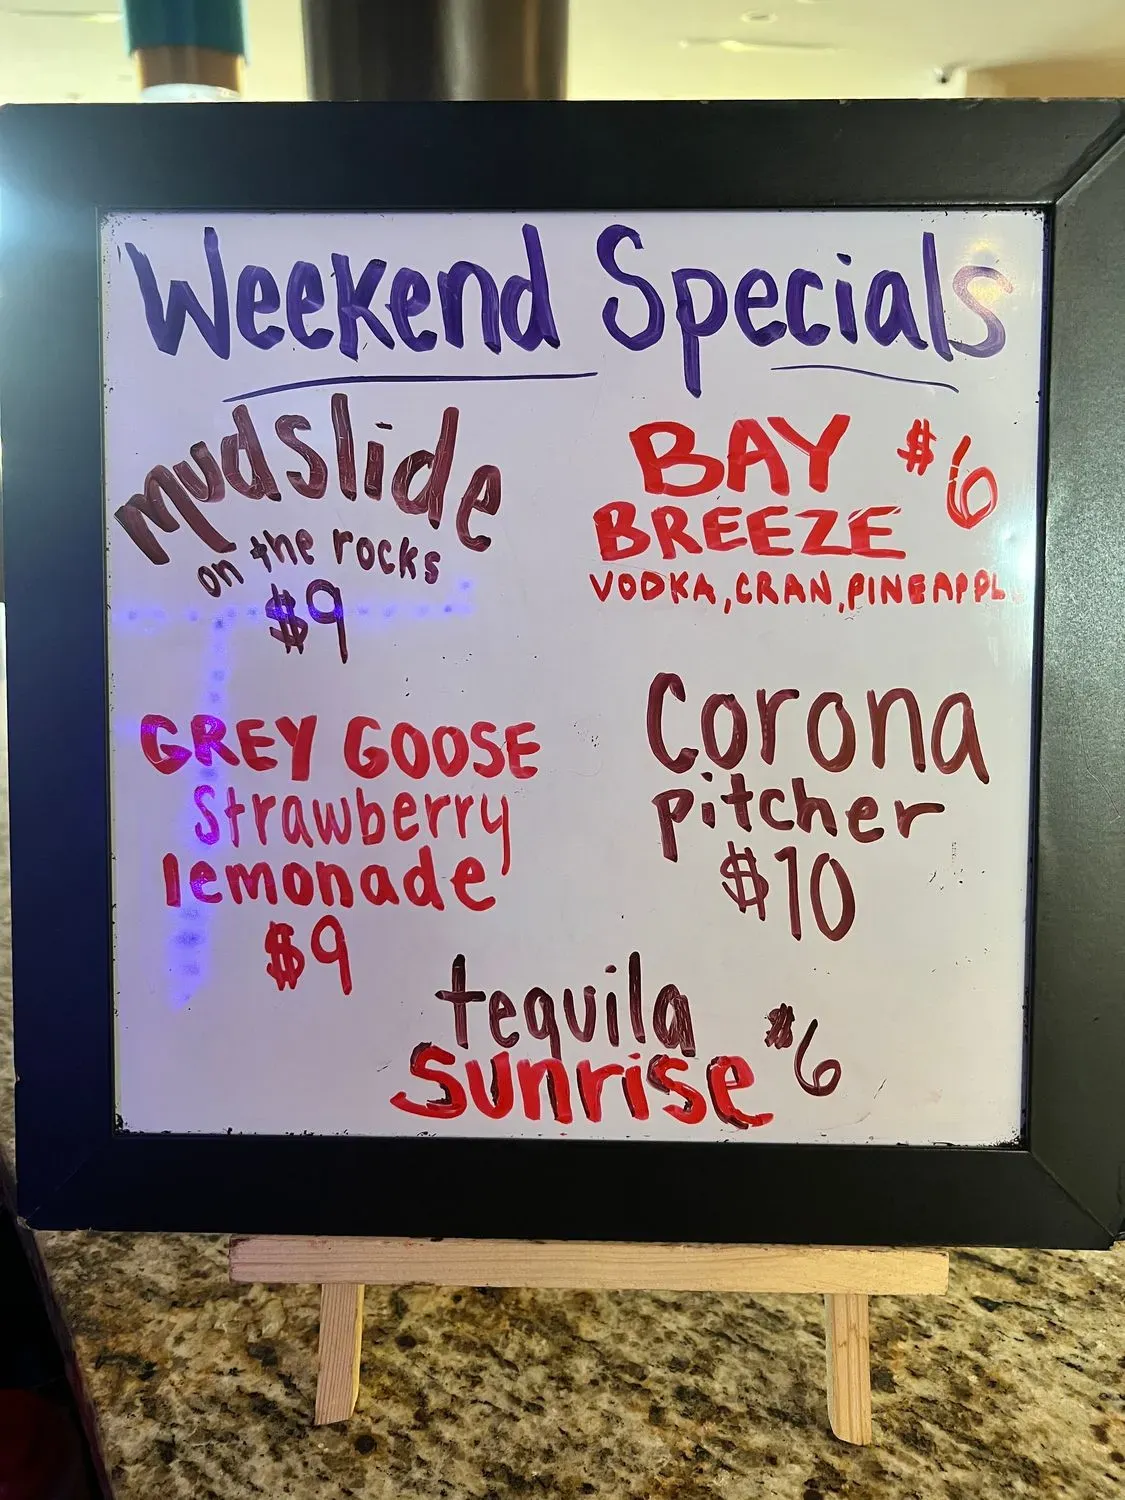 Weekend Specials
mudslide
on the rocks
$9
BAY $6
BREEZE
VODKA, CRAN, PINEAPPL
GREY GOOSE
Strawberry
lemonade
$9
Corona
pitcher
$10
tequila $6
Sunrise